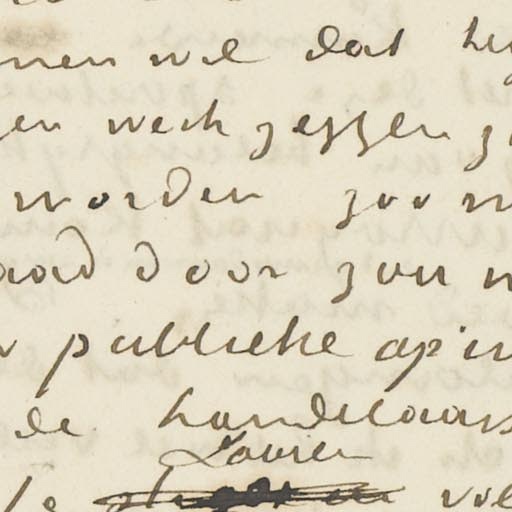 nnen wil dat hij
en werk zeggen z
worden zoo n
aad door zou n
publieke opin
de handelaars
Louren
le vol